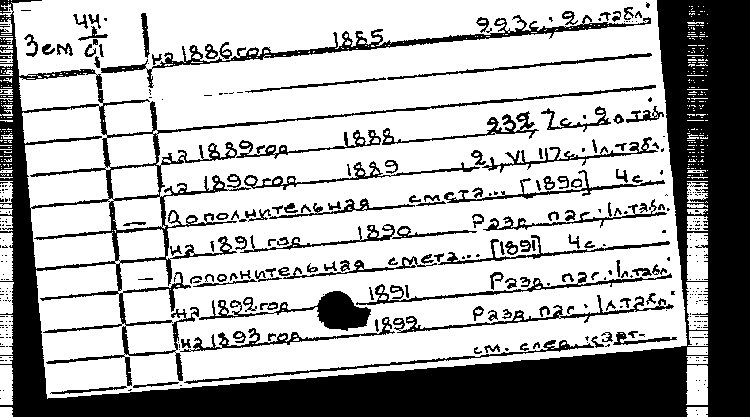 Зем 44. / 01
на 1886 год 1885. 223 с.; 2 л. табл.
на 1889 год 1888. 232, 7 с.; 2 л. табл.
на 1890 год 1889 2, VI, 117 с.; 1 л. табл.
— Дополнительная смета... [1890] 4 с.
на 1891 год. 1890. Разд. паг.; 1 л. табл.
— Дополнительная смета... [1891] 4 с.
на 1892 год 1891. Разд. паг.; 1 л. табл.
на 1893 год 1892. Разд. паг.; 1 л. табл.
см. след. карт.